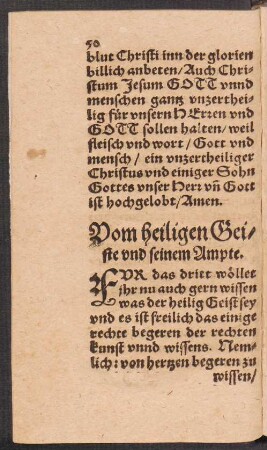 50
blut Christi inn der glorien
billich anbeten/Auch Chri⸗
stum Jesum GOTT vnnd
menschen gantz vnzerthei⸗
lig für vnsern HErren vnd
GOTT sollen halten/weil
fleisch vnd wort/Gott vnd
mensch/ein vnzertheiliger
Christus vnd einiger Sohn
Gottes vnser Herr vñ Gott
ist hochgelobt/Amen.
Vom heiligen Gei⸗
ste vnd seinem Ampte.
FVR das dritt wöllet
jhr nu auch gern wissen
was der heilig Geist sey
vnd es ist freilich das einige
rechte begeren der rechten
kunst vnnd wissens. Nem⸗
lich: von hertzen begeren zu
wissen/